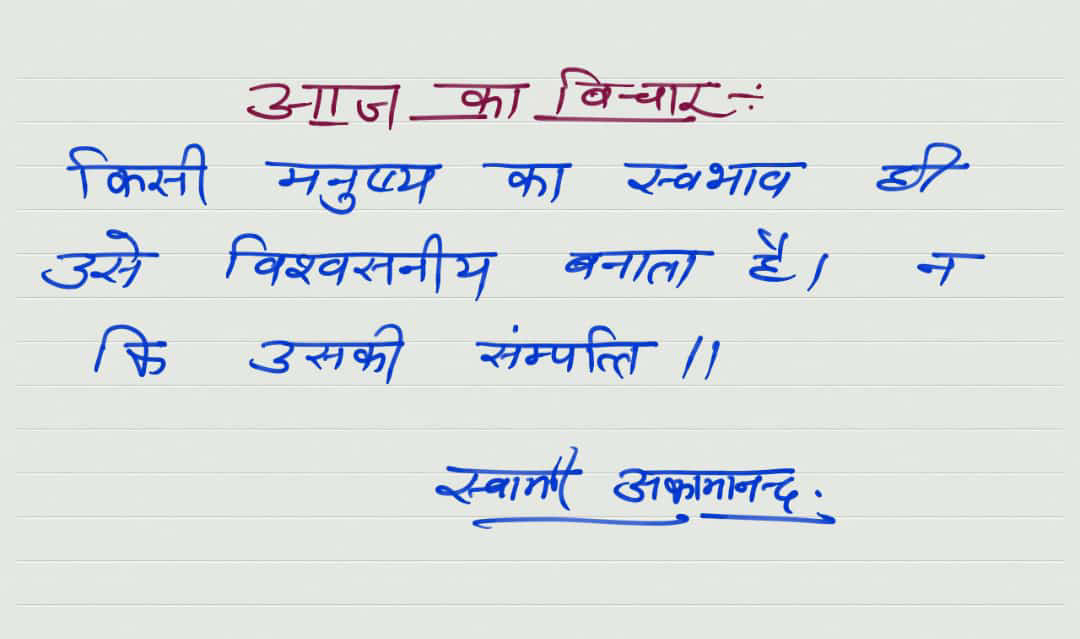 आज का विचार÷
किसी मनुष्य का स्वभाव ही
उसे विश्वसनीय बनाता है। न
कि उसकी संम्पत्ति ॥
स्वामी अकामानन्द.